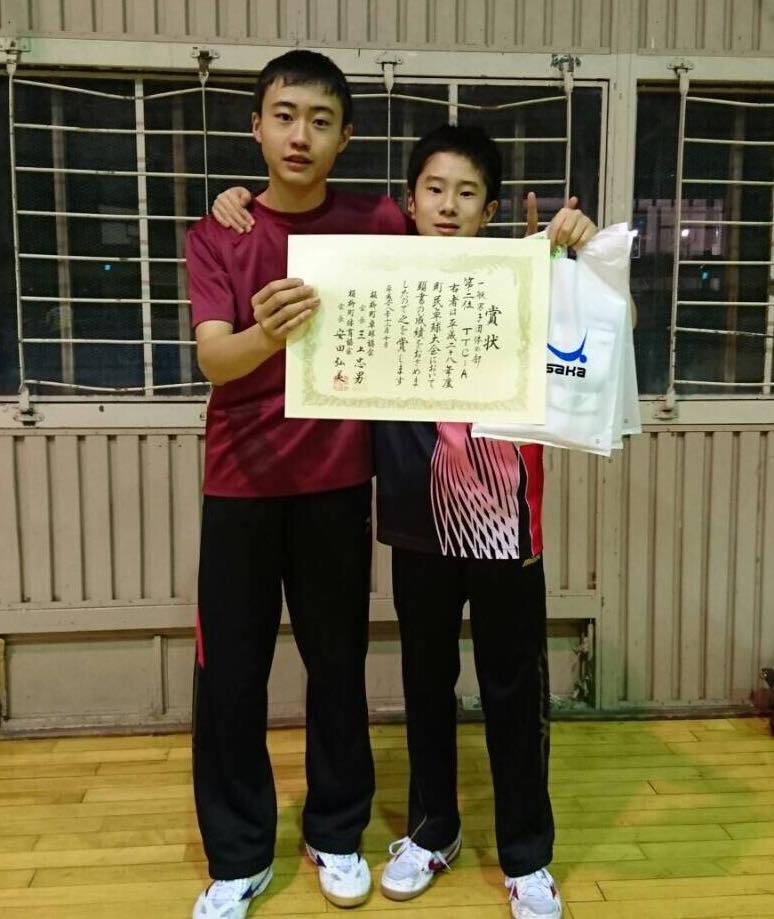 賞状
一般男子団体の部
第二位 TTC-A
右者は平成二十八年度
町民卓球大会において
頭書の成績をおさめま
したので之を賞します
板柳町卓球協会
会長 三上忠男
板柳町体育協会
会長 安田弘美
saka